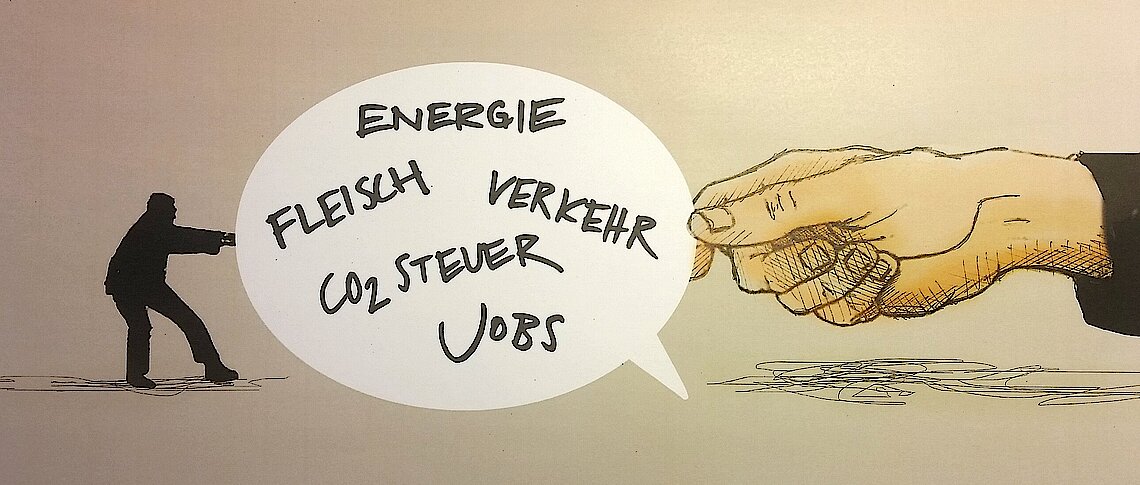 ENERGIE
FLEISCH VERKEHR
CO2 STEUER
JOBS